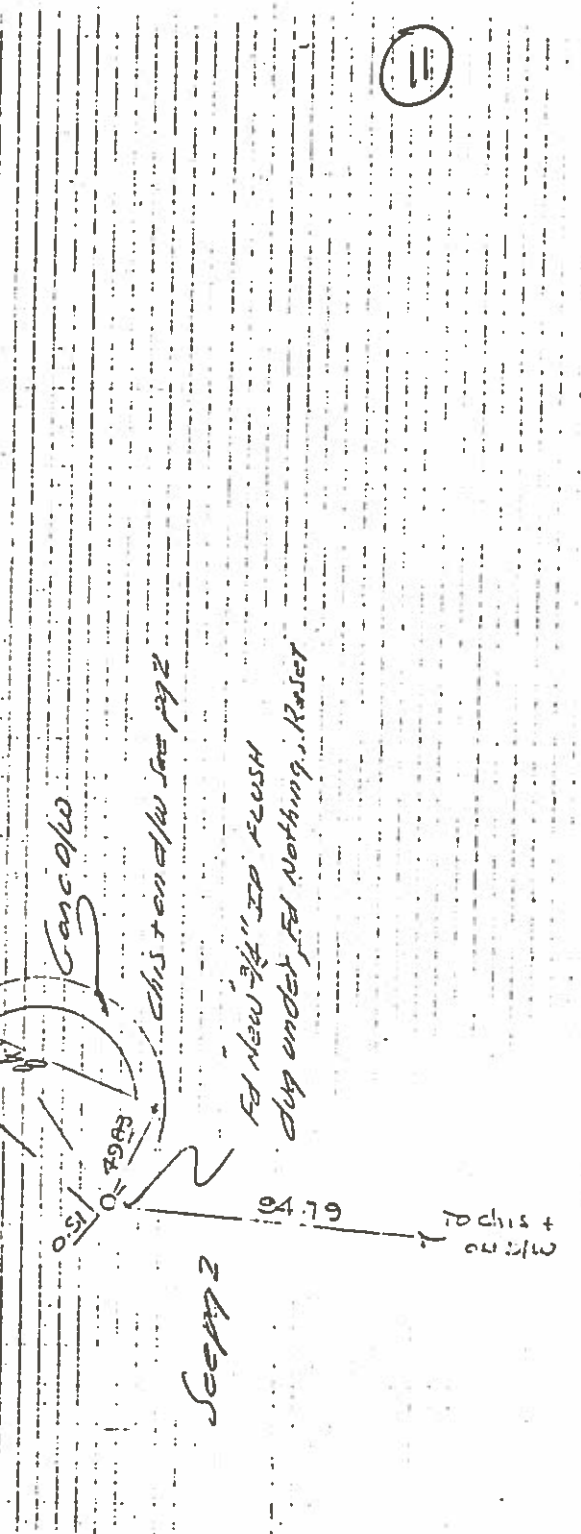 11
Conc D/W
Chis + on d/w See pg 2
Fd New 3/4" IP FLUSH
dug under, Fd Nothing, Reset
0.51
94.79
To chis +
on D/W
See pg 2